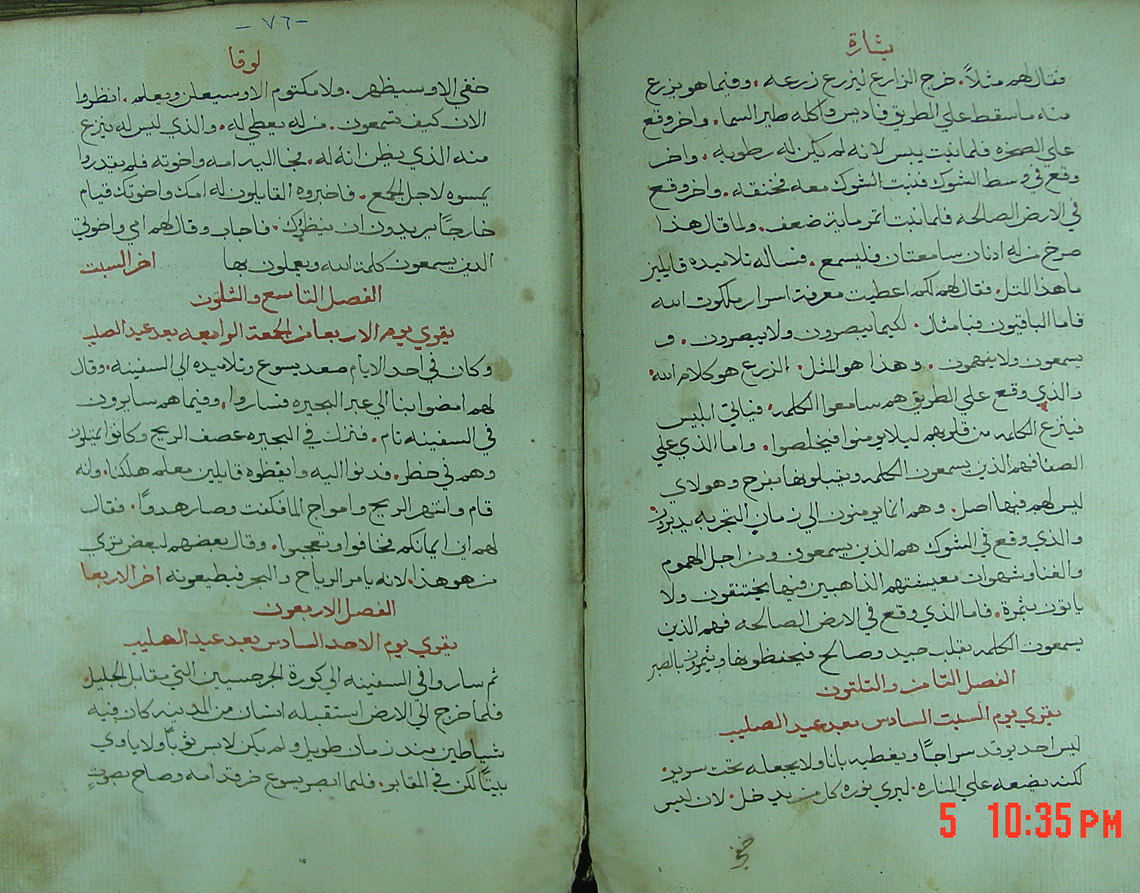 بشارة
فقال لهم مثلاً. خرج الزارع ليزرع زرعه. وفيما هو يزرع
منه ما سقط علي الطريق فاديس واكله طير السما. واخر وقع
علي الصخره فلما نبت يبس لانه لم يكن له رطوبه. واخر
وقع في وسط الشوك فنبت الشوك معه فخنقه. واخر وقع
في الارض الصالحه فلما نبت اثمر ماية ضعف. ولما قال هذا
صرخ من له اذنان سامعتان فليسمع. فساله تلاميذه قايلين
ما هذا المثل. فقال لهم لكم اعطيت معرفة اسرار ملكوت الله
فاما الباقيون فبامثال. لكيما يبصرون ولا يبصرون. و
يسمعون ولا يفهمون. وهذا هو المثل. الزرع هو كلام الله
والذي وقع علي الطريق هم سامعوا الكلمه. فياتي ابليس
فينزع الكلمه من قلوبهم ليلا يومنوا فيخلصوا. واما الذي علي
الصفا فهم الذين يسمعون الكلمه ويقبلونها بفرح وهولاي
ليس لهم فيها اصل. وهم انما يومنون الي زمان التجربه
والذي وقع في الشوك هم الذين يسمعون ومن اجل الهموم
والغنا وشهوات معيشتهم الذاهبين فيها يختنقون ولا
ياتون بثمرة. فاما الذي وقع في الارض الصالحه فهم الذين
يسمعون الكلمه بقلب جيد وصالح فيحفظونها ويثمرون بالصبر
الفصل الثامن والثلثون
يقري يوم السبت السادس بعد عيد الصليب
ليس احد يوقد سراجاً ويغطيه بانا ولا يجعله تحت سرير.
لكنه يضعه علي المناره. ليري نوره كل من يدخل. لان ليس
خفي
- ٧٦ -
لوقا
خفي الا وسيظهر. ولا مكتوم الا وسيعلن ويعلم. انظروا
الان كيف تسمعون. من له يعطي له. والذي ليس له ينزع
منه الذي يظن انه له. فجا اليه امه واخوته فلم يقدروا
يمسوه لاجل الجمع. فاخبروه القايلون له امك واخوتك قيام
خارجاً يريدون ان ينظروك. فاجاب وقال لهم امي واخوتي
الذين يسمعون كلمة الله ويعملون بها اخر السبت
الفصل التاسع والثلثون
يقري يوم الاربعا من الجمعة الرابعه بعد عيد الصليب
وكان في احد الايام صعد يسوع وتلاميذه الي السفينه. وقال
لهم امضوا بنا الي عبر البحيره فساروا. وفيما هم سايرون
في السفينه نام. فنزل في البحيره عصف الريح وكانوا
وهم في خطر. فدنوا اليه وايقظوه قايلين معلم هلكنا. وانه
قام وانتهر الريح وامواج الما فكفت وصار هدواً. فقال
لهم اين ايمانكم فخافوا وتعجبوا. وقال بعضهم لبعض تري
من هو هذا. لانه يامر الرياح والبحر فيطيعونه اخر الاربعا
الفصل الاربعون
يقري يوم الاحد السادس بعد عيد الصليب
ثم ساروا في السفينه الي كورة الجرجسيين التي مقابل الجليل
فلما خرج الي الارض استقبله انسان من المدينه كان فيه
شياطين منذ زمان طويل ولم يكن لابس ثوباً ولا ياوي
بيتاً لكن في المقابر. فلما ابصر يسوع خر قدامه وصاح بصوتٍ
5 10:35 PM